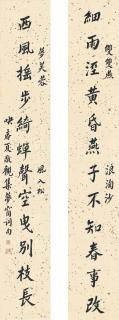 雙雙燕
浪淘沙
細雨溼黃昏燕子不知春事改
夢芙蓉
風入松
西風搖步綺蟬聲空曳別枝長
映庵夏敬觀集夢窗詞句